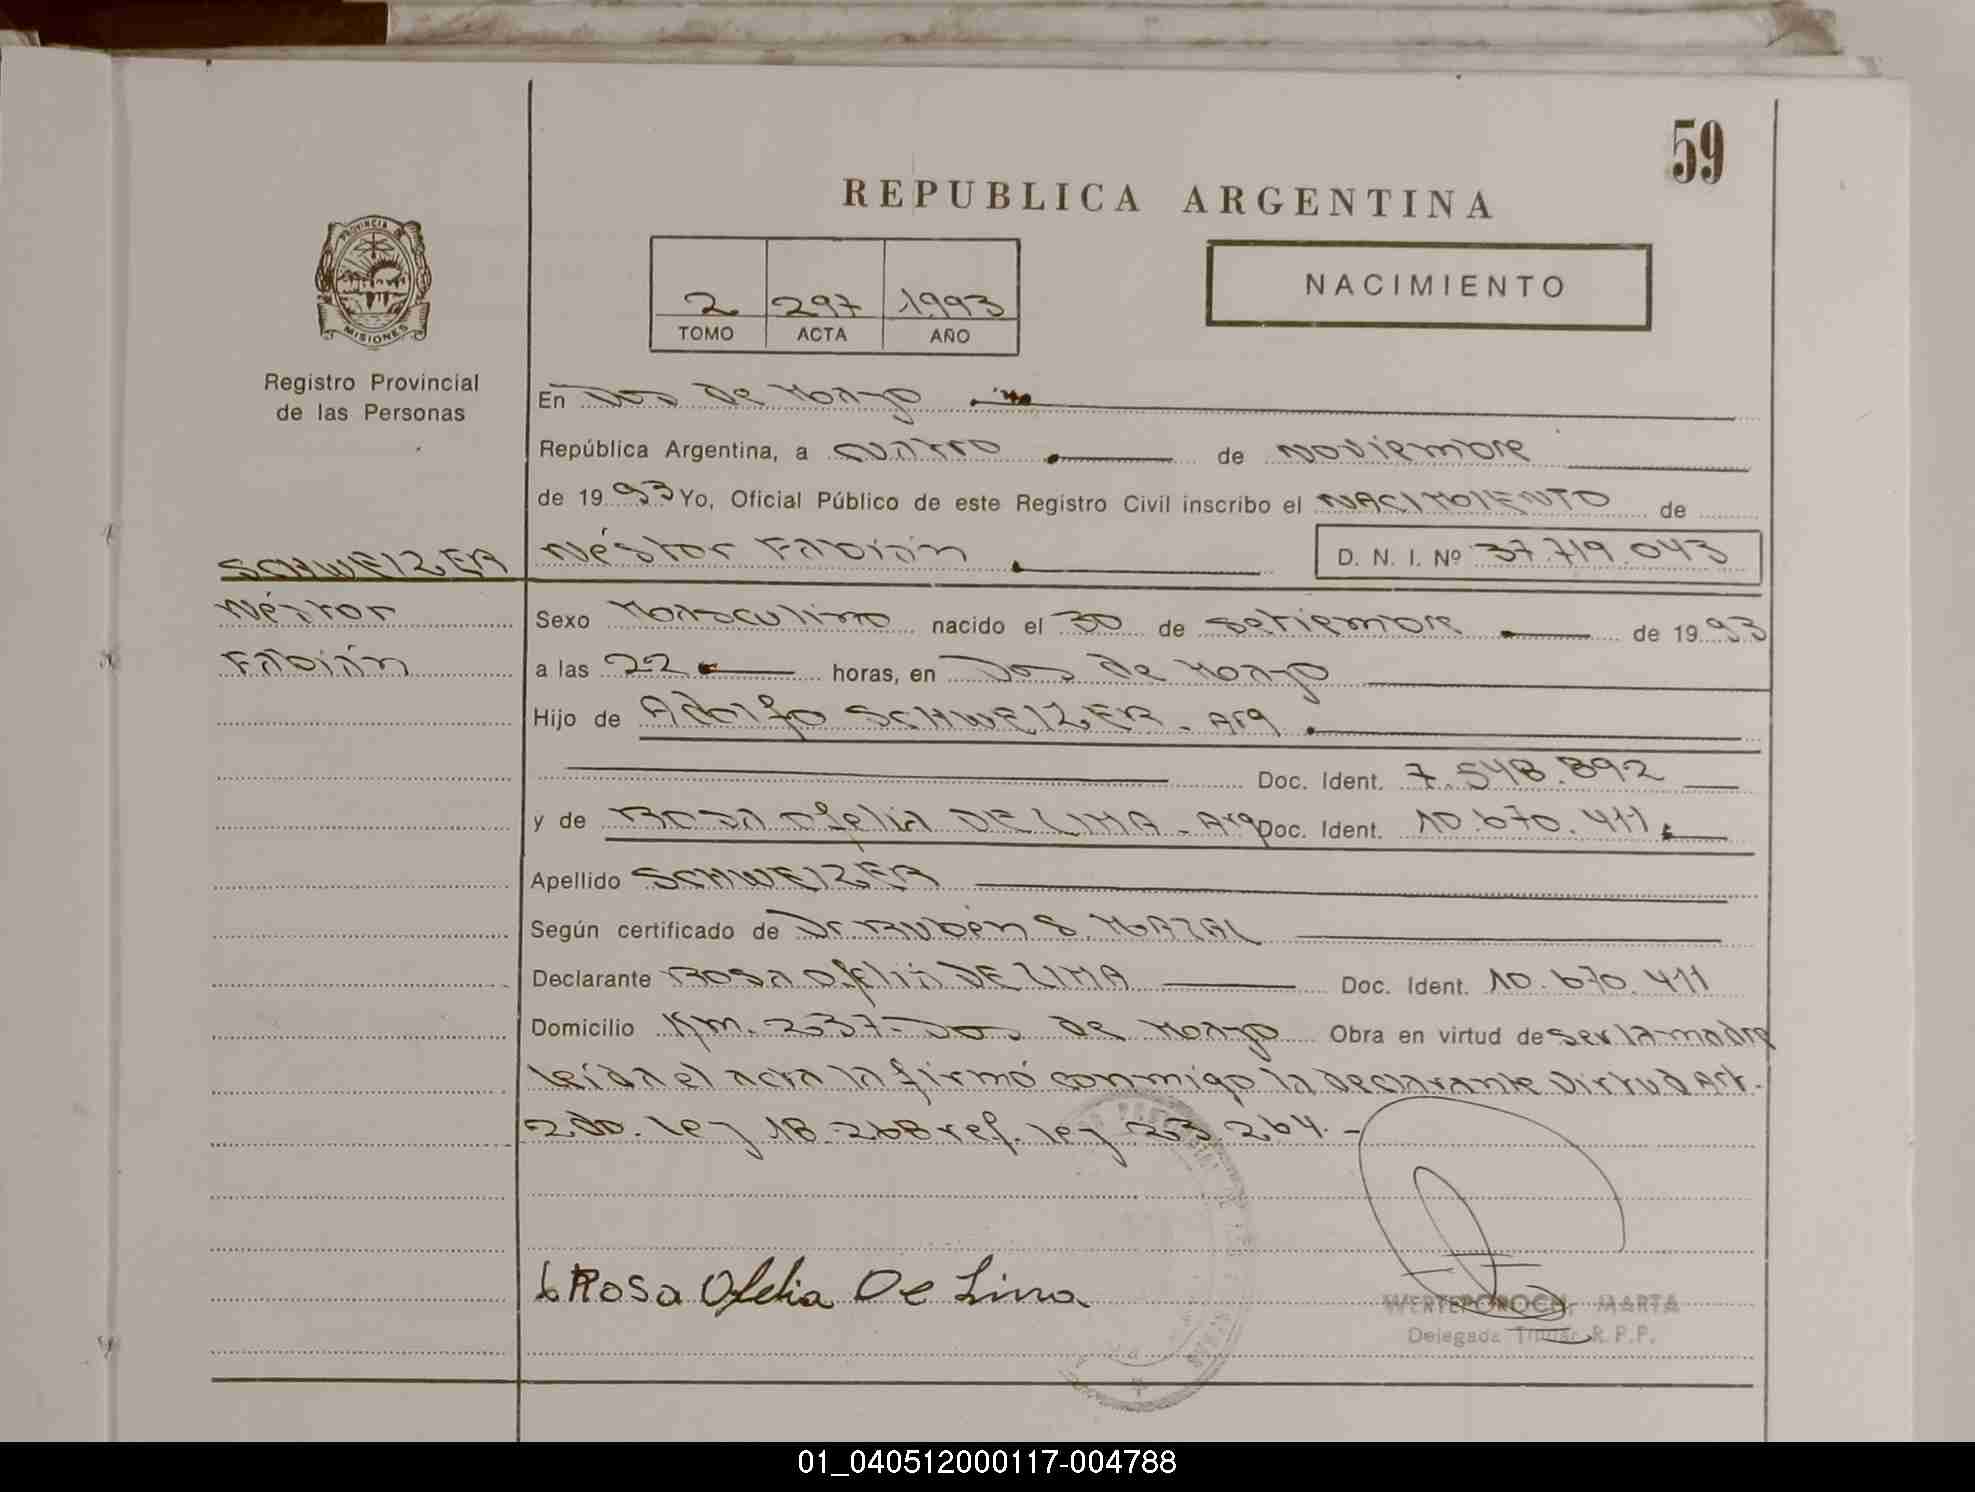 59
REPUBLICA ARGENTINA
PROVINCIA DE
MISIONES
2 297 1993
TOMO ACTA AÑO
NACIMIENTO
Registro Provincial
de las Personas
En Dos de Mayo
República Argentina, a cuatro de noviembre
de 1993 Yo, Oficial Público de este Registro Civil inscribo el NACIMIENTO de
SCHWEIZER Néstor Fabián D. N. I. Nº 37.719.043
Néstor Sexo Masculino nacido el 30 de setiembre de 1993
Fabián a las 22 horas, en Dos de Mayo
Hijo de Adolfo SCHWEIZER - Arg
Doc. Ident. 7.548.892
y de Rosa Ofelia DE LIMA - Arg Doc. Ident. 10.670.411
Apellido SCHWEIZER
Según certificado de Dr Rubén S. MAZAL
Declarante Rosa Ofelia DE LIMA Doc. Ident. 10.670.411
Domicilio Km. 237- Dos de Mayo Obra en virtud de ser la madre
leída el acta la firmó conmigo la declarante virtud Art.
2do. ley 18.268 ref. ley 23.264.-
Rosa Ofelia De Lima
WERTEPOROCH, MARTA
Delegada Titular R.P.P.
01_040512000117-004788